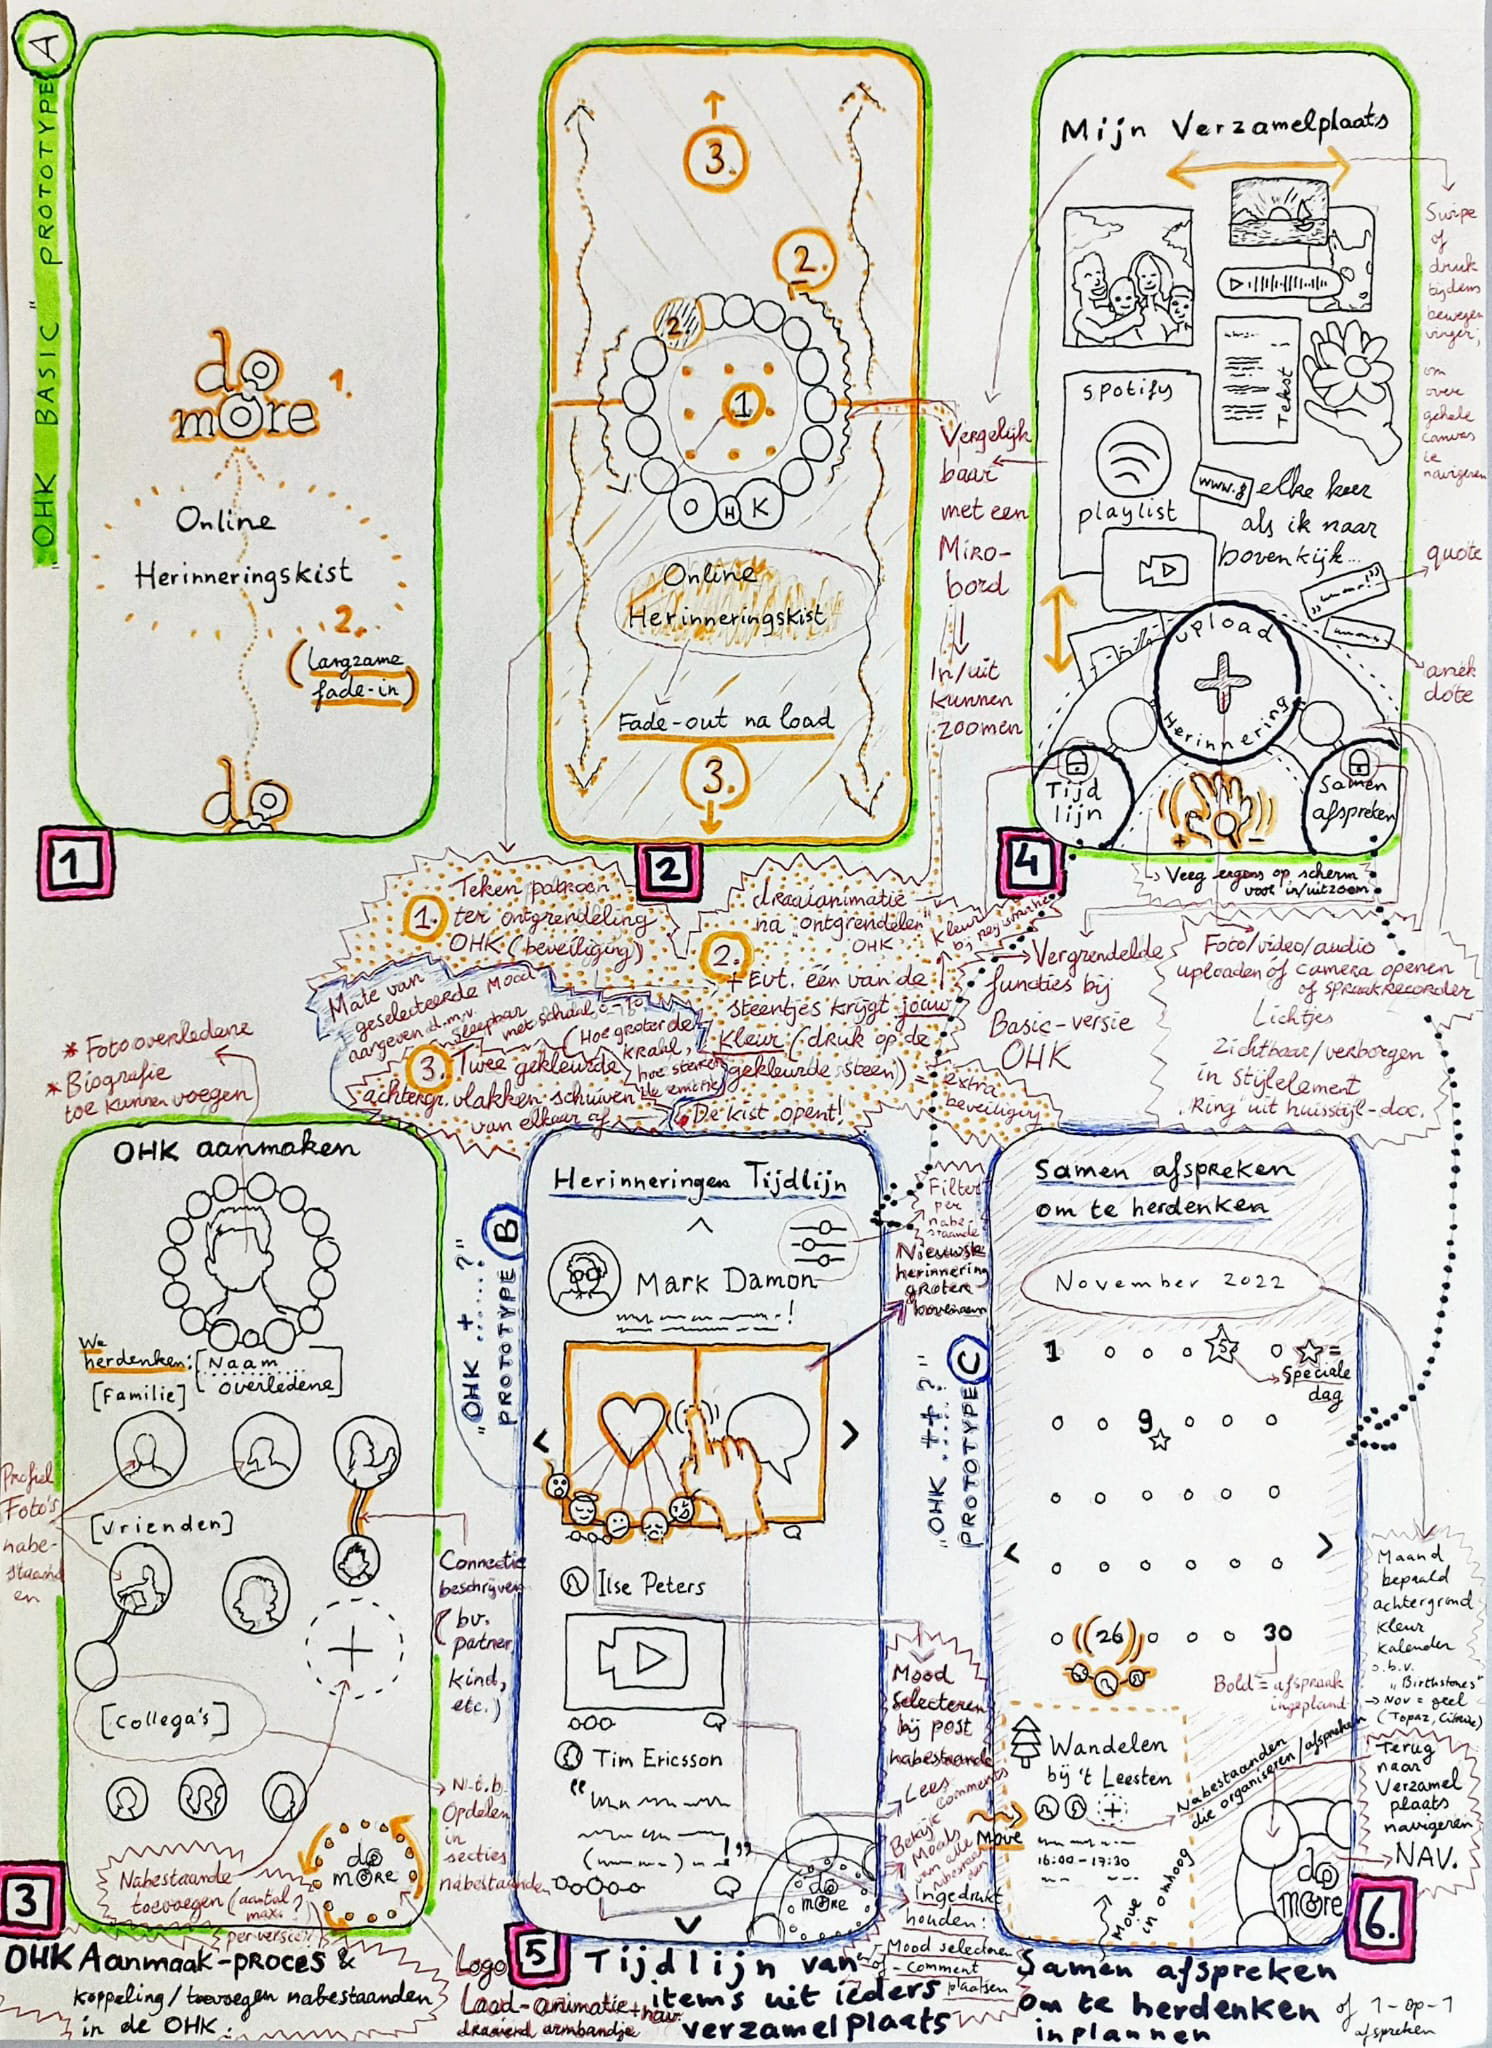 A
"OHK BASIC" PROTOTYPE
do
more
1.
Online
Herinneringskist
2.
(Langzame
fade-in)
do
1
3.
2.
2.
1
O H K
Online
Herinneringskist
Fade-out na load
3.
2
Mijn Verzamelplaats
Tekst
spotify
playlist
www.g
elke keer
als ik naar
boven kijk...
upload
Herinnering
Tijd
lijn
Samen
afspreken
+ -
4
Veeg ergens op scherm
voor in/uitzoom
Swipe
of
druk
tijdens
bewegen
vinger,
om
over
gehele
canvas
te
navigeren
quote
anek
dote
Vergelijk
baar
met een
Miro-
bord
In/uit
kunnen
zoomen
1. Teken patroon
ter ontgrendeling
OHK (beveiliging)
2. draaianimatie
na "ontgrendelen"
OHK
+ Evt. één van de
steentjes krijgt jouw
kleur (druk op de
gekleurde steen) =
extra
beveiliging
Mate van
geselecteerde mood
aangeven d.m.v.
sleepbar
met schaal
(Hoe groter de
kraal,
hoe sterker
de emotie
3. Twee gekleurde
achtergr. vlakken schuiven
van elkaar af
De kist opent!
Vergrendelde
functies bij
Basic-versie
OHK
Foto/video/audio
uploaden of camera openen
of spraakrecorder
Lichtjes
zichtbaar/verborgen
in stijlelement
"Ring" uit huisstijl-doc.
* Foto overledene
* Biografie
toe kunnen voegen
OHK aanmaken
We
herdenken: [Naam
overledene]
[Familie]
[Vrienden]
[Collega's]
Profiel
Foto's
nabe-
staand
en
Connectie
beschrijven
(bv.
partner
kind,
etc.)
N.t.b.
Opdelen
in
secties
nabestaanden
Nabestaande
toevoegen (aantal
max.?
per versie)
do
more
3
OHK Aanmaak-proces &
koppeling/toevoegen nabestaanden
in de OHK.
Logo
Laad-animatie + nav.
draaiend armbandje
B
"OHK .+.....?"
PROTOTYPE
Herinneringen Tijdlijn
Mark Damon
Ilse Peters
Tim Ericsson
do
more
Filter
per
nabe-
staande
Nieuwste
herinnering
groter
bovenaan
Mood
selecteren
bij post
nabestaande
Lees
comments
Bekijk
Moods
van alle
nabestaan
den
Ingedrukt
houden:
- Mood selecteren
of - comment
plaatsen
5
Tijdlijn van
items uit ieders
verzamelplaats
C
"OHK .++.?"
PROTOTYPE
Samen afspreken
om te herdenken
November 2022
1
5
= Speciale
dag
9
26
30
Bold = afspraak
ingepland
Wandelen
bij 't Leesten
16:00 - 17:30
Move
Move
omhoog
Nabestaanden
die organiseren/afspreken
do
more
Maand
bepaald
achtergrond
kleur
kalender
o.b.v.
"Birthstones"
→ Nov = geel
(Topaz, Citrine)
Terug
naar
Verzamel
plaats
navigeren
NAV.
6.
Samen afspreken
om te herdenken
inplannen
of 1-op-1
afspreken